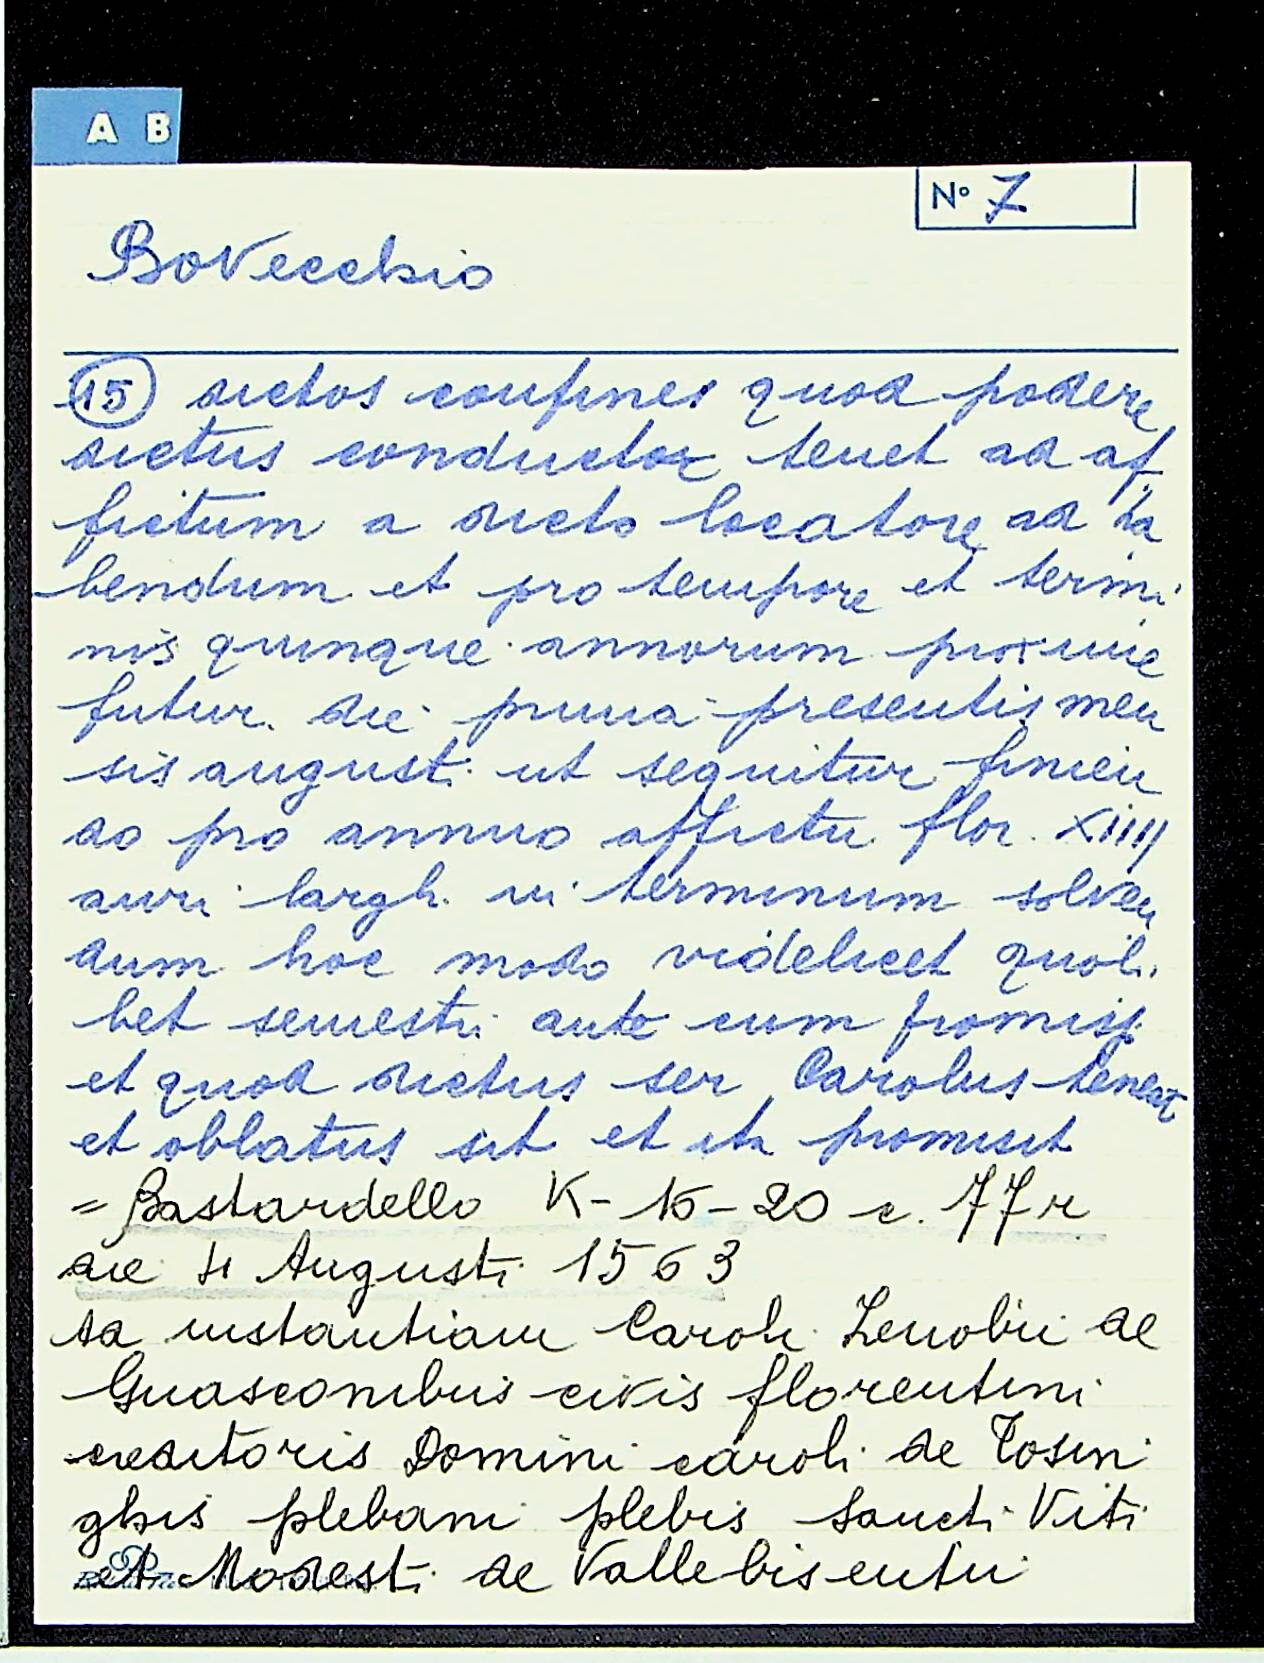 A B
N° 7
Bovecchio
15 dictos confines quod podere
dictus conductor tenet ad af
fictum a dicto locatore ad ha
bendum et pro tempore et termi
nis quinque annorum proxime
futur. die prima presentis men
sis augusti ut sequitur finien
do pro annuo affictu flor. XIIII
auri largh. in terminum solven
dum hoc modo videlicet quoli
bet semestri ante cum promiss.
et quod dictus ser Carolus teneat
et oblatus sit et ita promisit
= Bastardello K-16-20 c. 77r
die 4 Augusti 1563
ad instantiam Caroli Zenobii de
Guasconibus civis florentini
creditoris Domini caroli de Tosin
ghis plebani plebis Sancti Viti
et Modesti de Vallebisentii